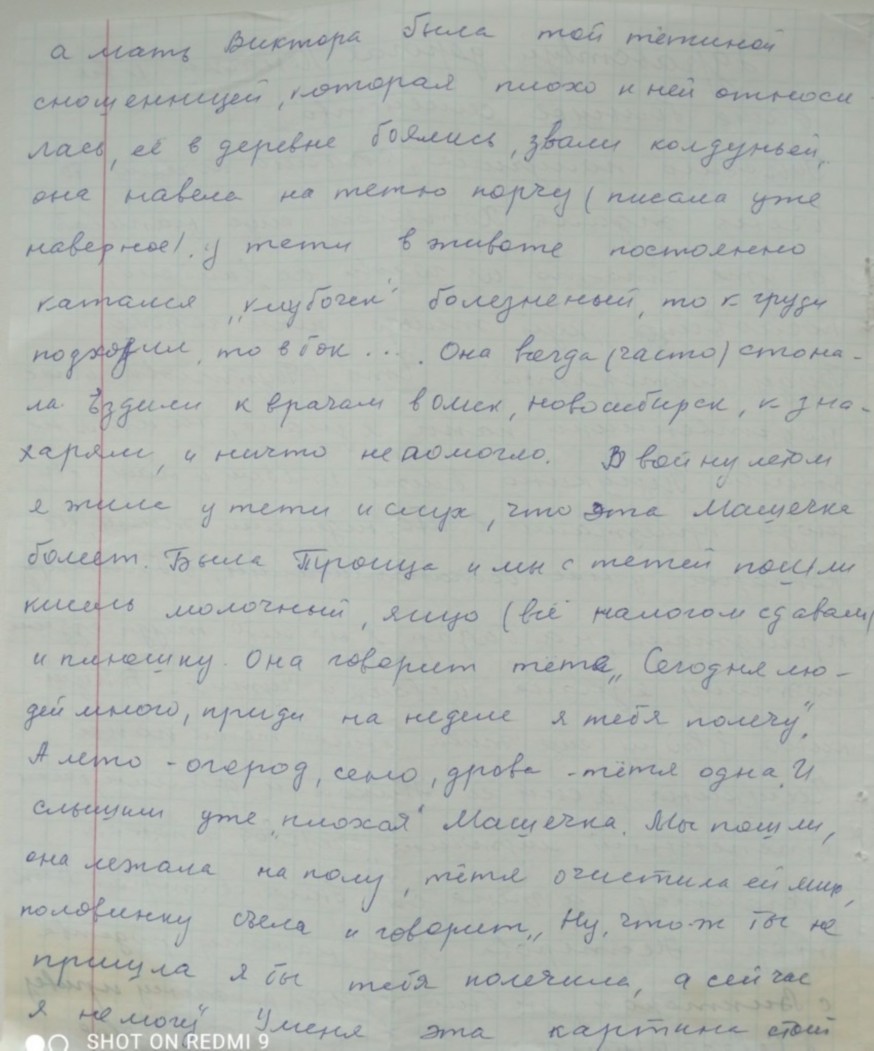 а мать Виктора была той тётиной
сношенницей, которая плохо к ней относи
лась, её в деревне боялись, звали колдуньей,
она навела на тетю порчу (писала уже
наверное). У тети в животе постоянно
катался „клубочек" болезненый, то к груди
подходил, то в бок... . Она всегда (часто) стона-
ла ездили к врачам в Омск, Новосибирск, к зна-
харям, и ничто не помогло. В войну летом
я жила у тети и слух, что эта Машечка
болеет. Была Троица и мы с тетей пошли
кисель молочный, яйцо (всё налогом сдавали)
и плюшку. Она говорит тёте „Сегодня лю-
дей много, приди на неделе я тебя полечу".
А лето - огород, сено, дрова - тётя одна. И
слышим уже „плохая" Машечка. Мы пошли,
она лежала на полу, тётя очистила ей яйцо,
половинку съела и говорит „Ну, что ж ты не
пришла я бы тебя полечила, а сейчас
я не могу" У меня эта картина стоит
SHOT ON REDMI 9